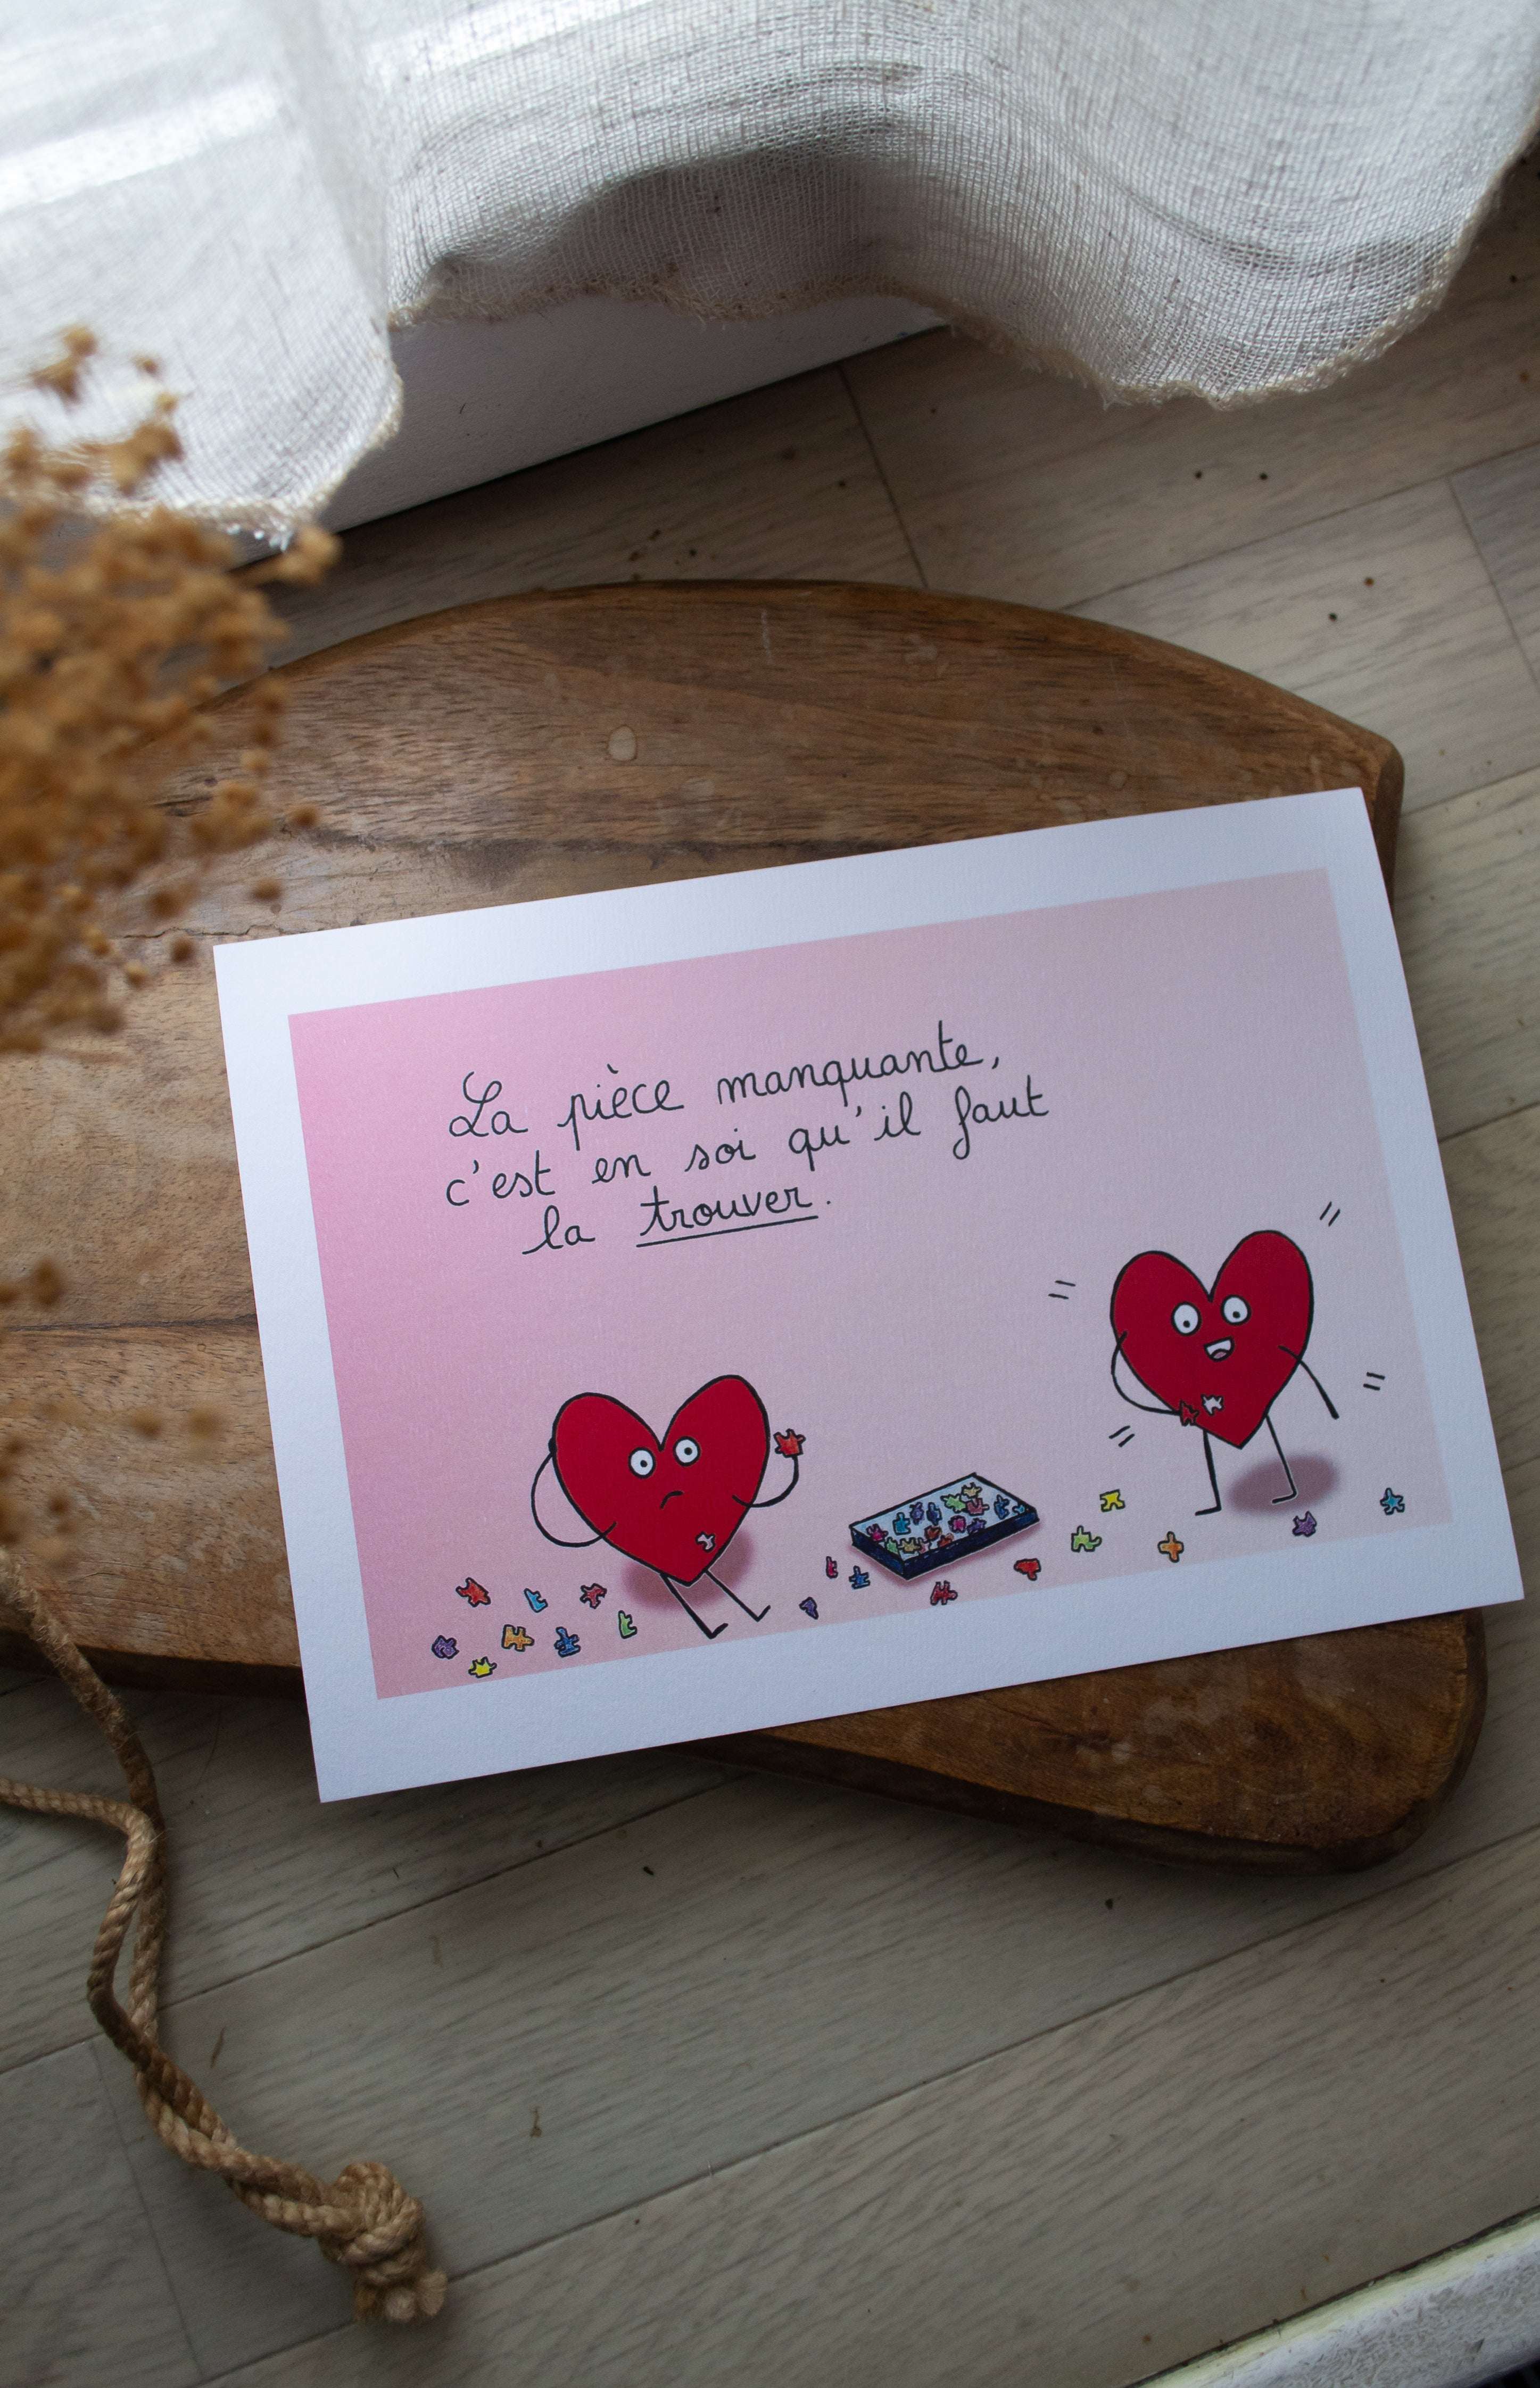 La pièce manquante,
c'est en soi qu'il faut
la trouver.